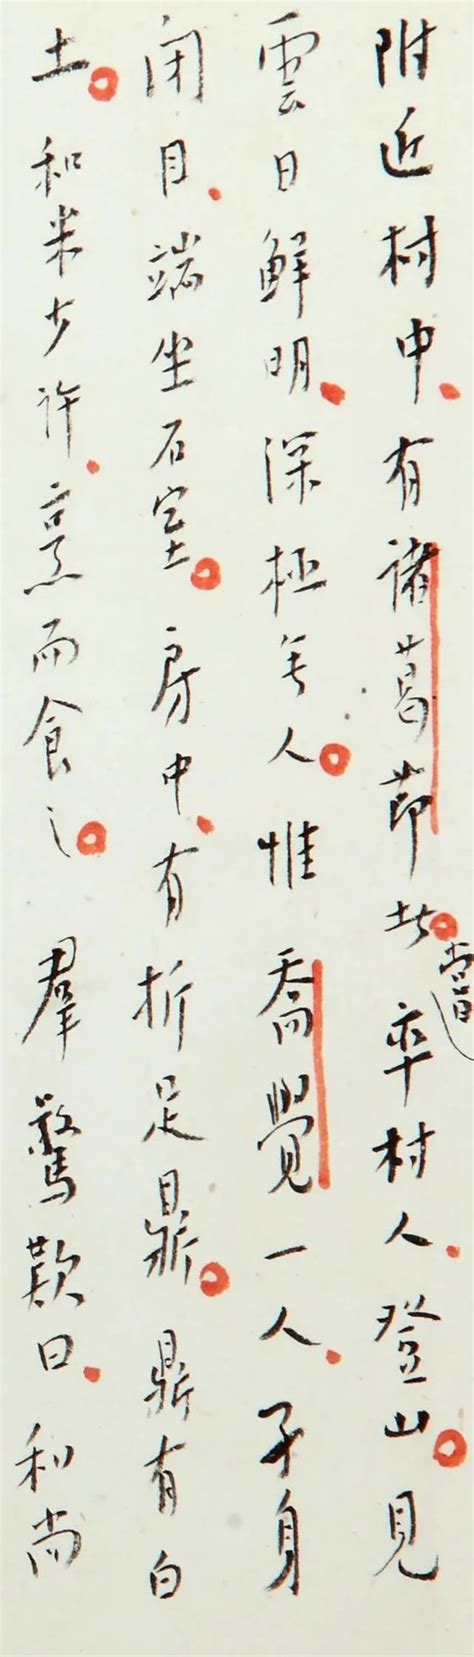 附近村中、有諸葛節者。嘗率村人、登山。見
雲日鮮明、深極無人。惟喬覺一人、孑身
閉目、端坐石室。房中、有折足鼎。鼎有白
土。和米少許、烹而食之。羣驚歎曰、和尚